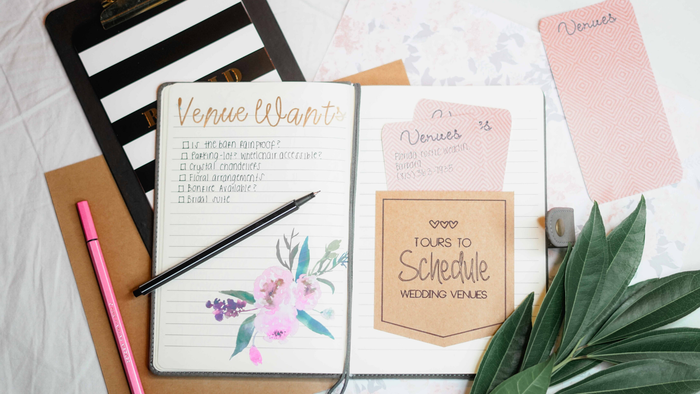 Venue Wants
Is the barn rainproof?
Parking-lot wheelchair accessible?
Crystal chandeliers
Floral arrangements
Bonfire Available?
Bridal suite
Venues 's
TOURS TO
Schedule
WEDDING VENUES
Venues